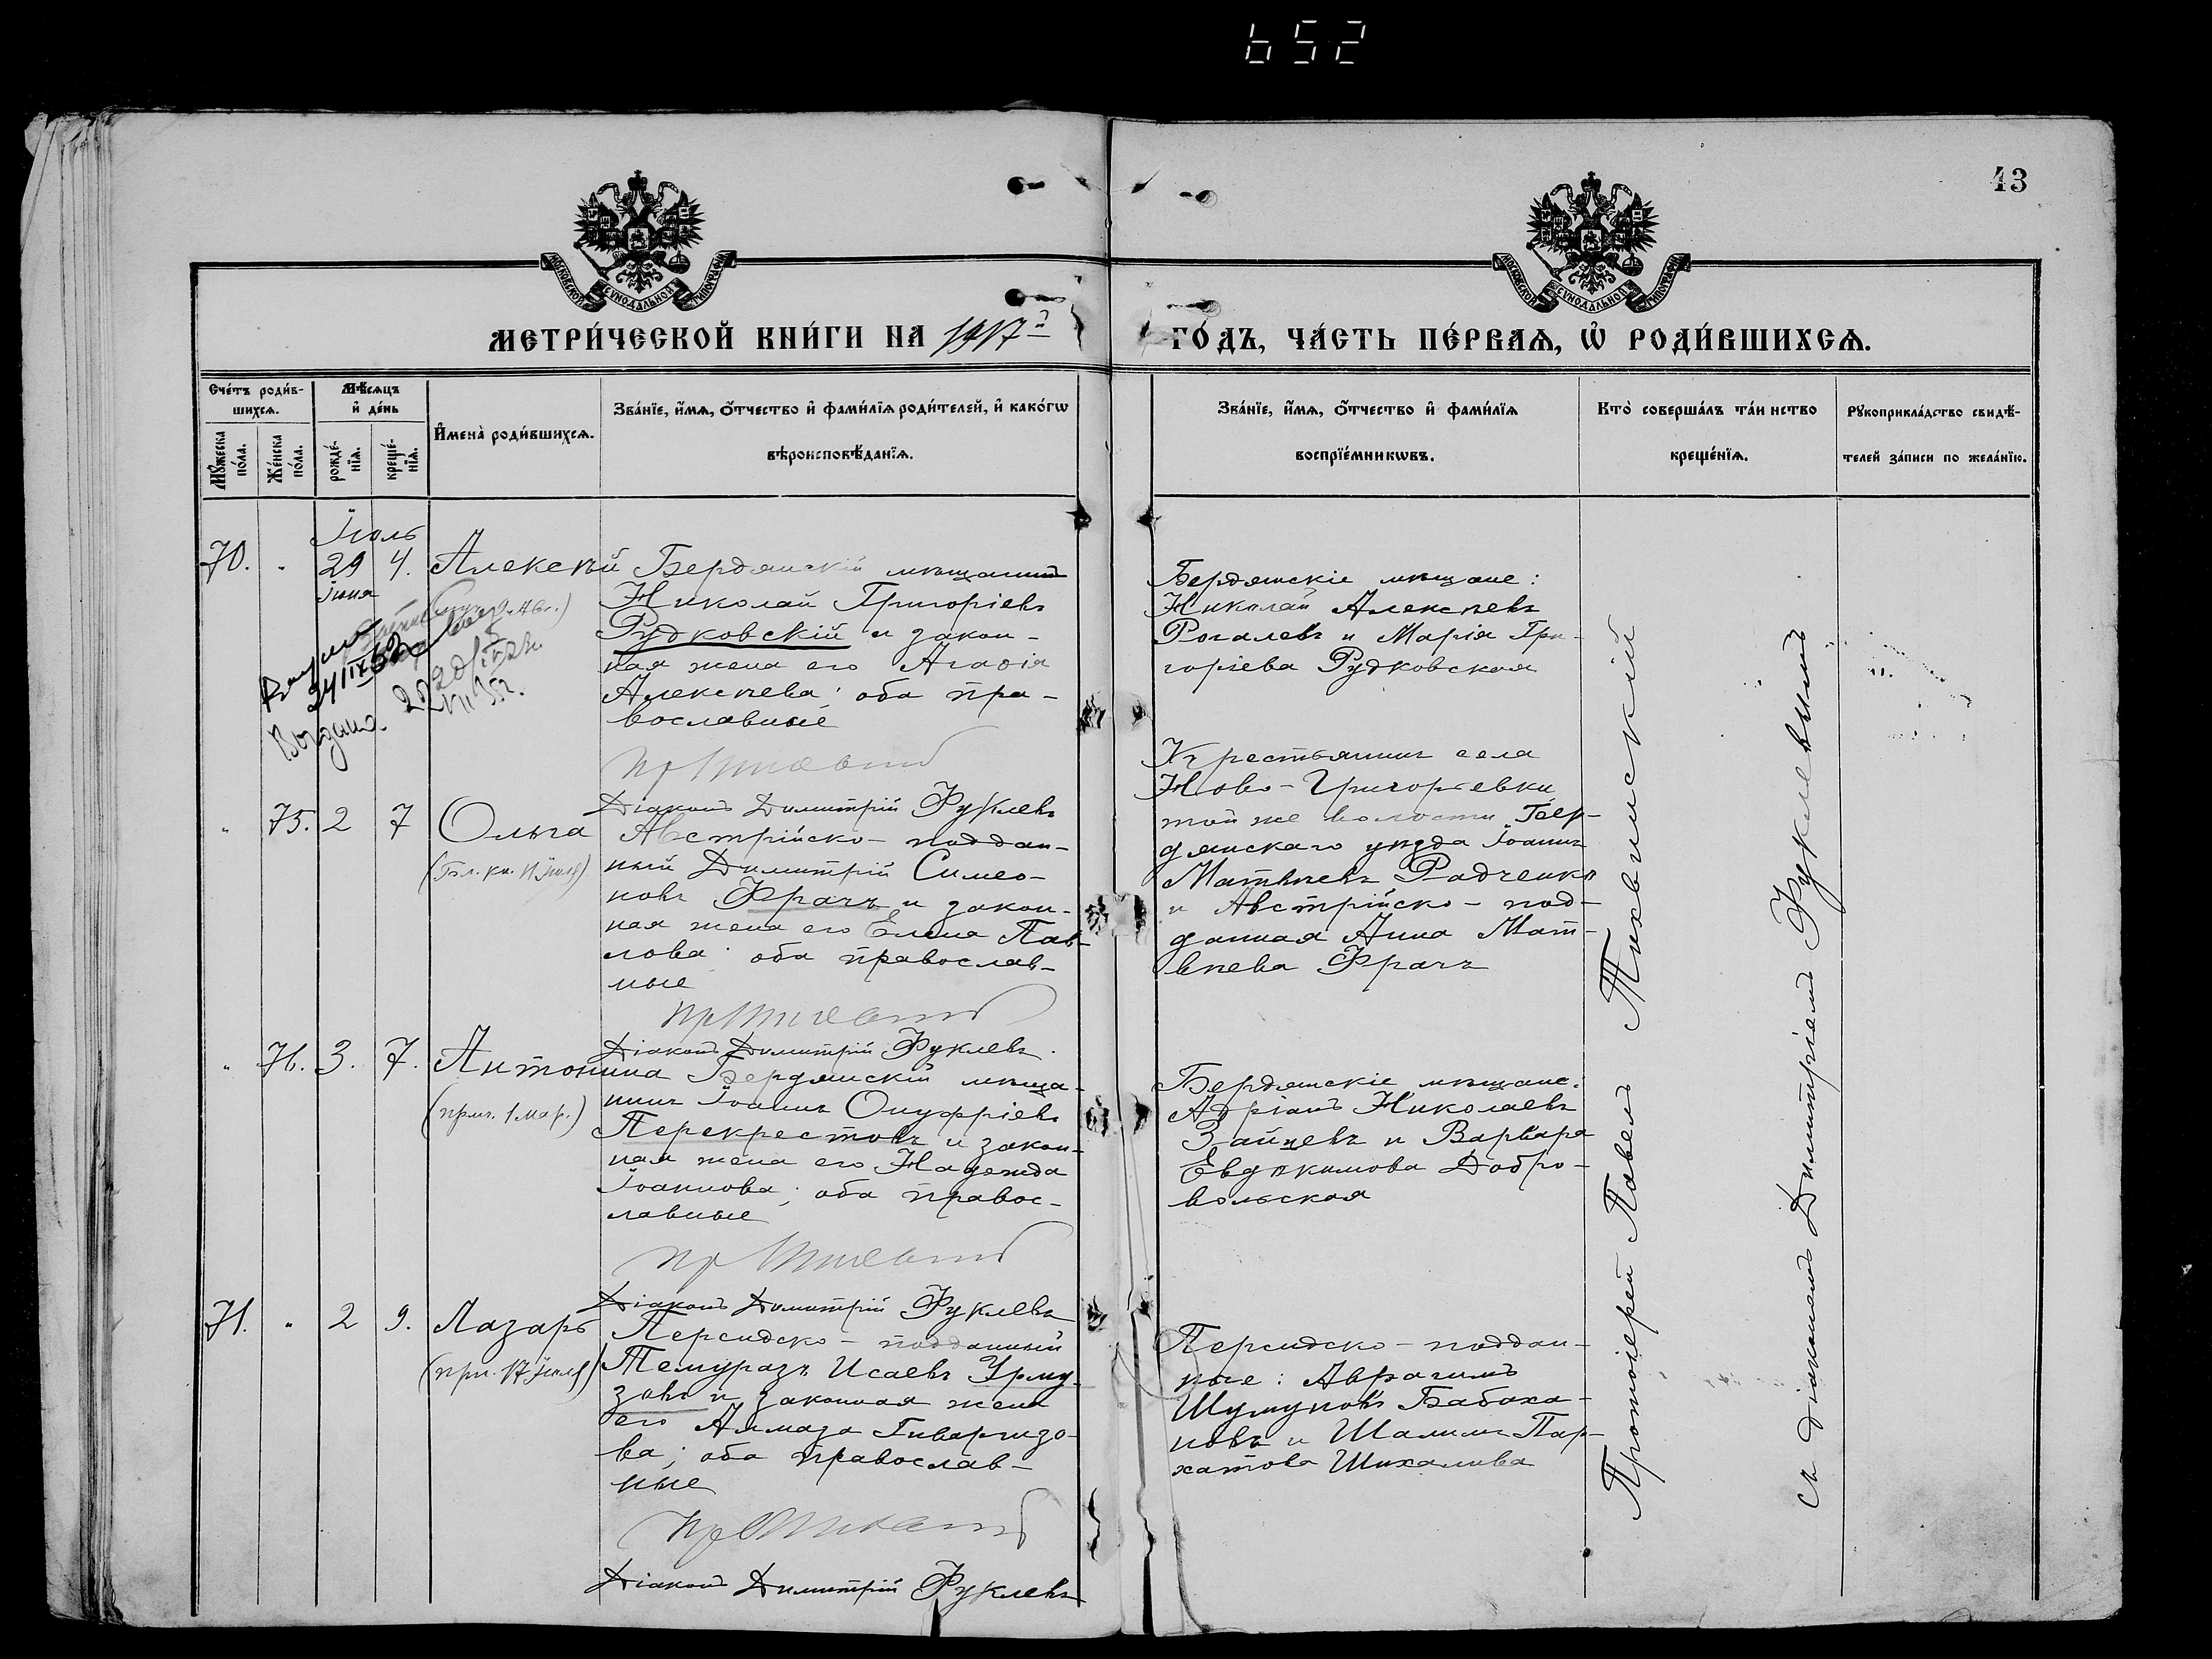 652
43
МОСКОВСКОЙ СѴНОДАЛЬНОЙ ТИПОГРАФІИ
МОСКОВСКОЙ СѴНОДАЛЬНОЙ ТИПОГРАФІИ
МЕТРИ́ЧЕСКОЙ КНИ́ГИ НА 1917й ГО́ДЪ, ЧА́СТЬ ПЕ́РВАѦ, Ѡ҆ РОДИ́ВШИХСѦ.
Сче́тъ роди́в-
шихсѧ.
Мꙋ́жеска по́ла.
Же́нска по́ла.
Мѣ́сѧцъ
и҆ де́нь
рожде́-
нїѧ.
креще́-
нїѧ.
И҆мена̀ роди́вшихсѧ.
Зва́нїе, и҆́мѧ, ѻ҆́тчество и҆ фами́лїѧ роди́телей, и҆ како́гѡ
вѣроисповѣ́данїѧ.
Зва́нїе, и҆́мѧ, ѻ҆́тчество и҆ фами́лїѧ
воспрїе́мникѡвъ.
Кто̀ соверша́лъ та́инство
креще́нїѧ.
Рꙋкоприкла́дство свидѣ́-
телей за́писи по жела́нїю.
Іюль
70. " 29 4. Алексѣй
Іюня
Бердянскій мѣщанинъ
Николай Григоріевъ
Рудковскій и закон-
ная жена его Агаѳія
Алексѣева; оба пра-
вославные
Діаконъ Димитрій Фуклевъ
Бердянскіе мѣщане:
Николай Алексѣевъ
Рогалевъ и Марія Гри-
горіева Рудковская
" 75. 2 7 Ольга
(Бл. кн. 11 Іюля)
Австрійско-поддан-
ный Димитрій Симео-
новъ Фрачъ и закон-
ная жена его Елена Пав-
лова; оба православ-
ные
Діаконъ Димитрій Фуклевъ.
Крестьянинъ села
Ново-Григорьевки
той же волости, Бер-
дянскаго уѣзда Іоаннъ
Матвѣевъ Радченко
и Австрійско-под-
данная Анна Мат-
вѣева Фрачъ
" 76. 3. 7. Антонина
(прмч. 1 мар.)
Бердянскій мѣща-
нинъ Іоаннъ Онуфріевъ
Перекрестовъ и закон-
ная жена его Надежда
Іоаннова; оба правос-
лавные
Діаконъ Димитрій Фуклевъ
Бердянскіе мѣщане:
Адріанъ Николаевъ
Зайцевъ и Варвара
Евдокимова Добро-
вольская
71. " 2 9. Лазарь
(прп. 17 Іюля)
Персидско-подданный
Темуразъ Исаевъ Урму-
зовъ и законная жена
его Алмаза Гиваргизо-
ва; оба православ-
ные
Діаконъ Димитрій Фуклевъ
Персидско-поддан-
ные: Аврагимъ
Шумуновъ Бабаха-
новъ и Шалимъ Пар-
хатова Шихалиева
Протоіерей Павелъ Тихвинскій
съ діакономъ Димитріемъ Фуклевымъ